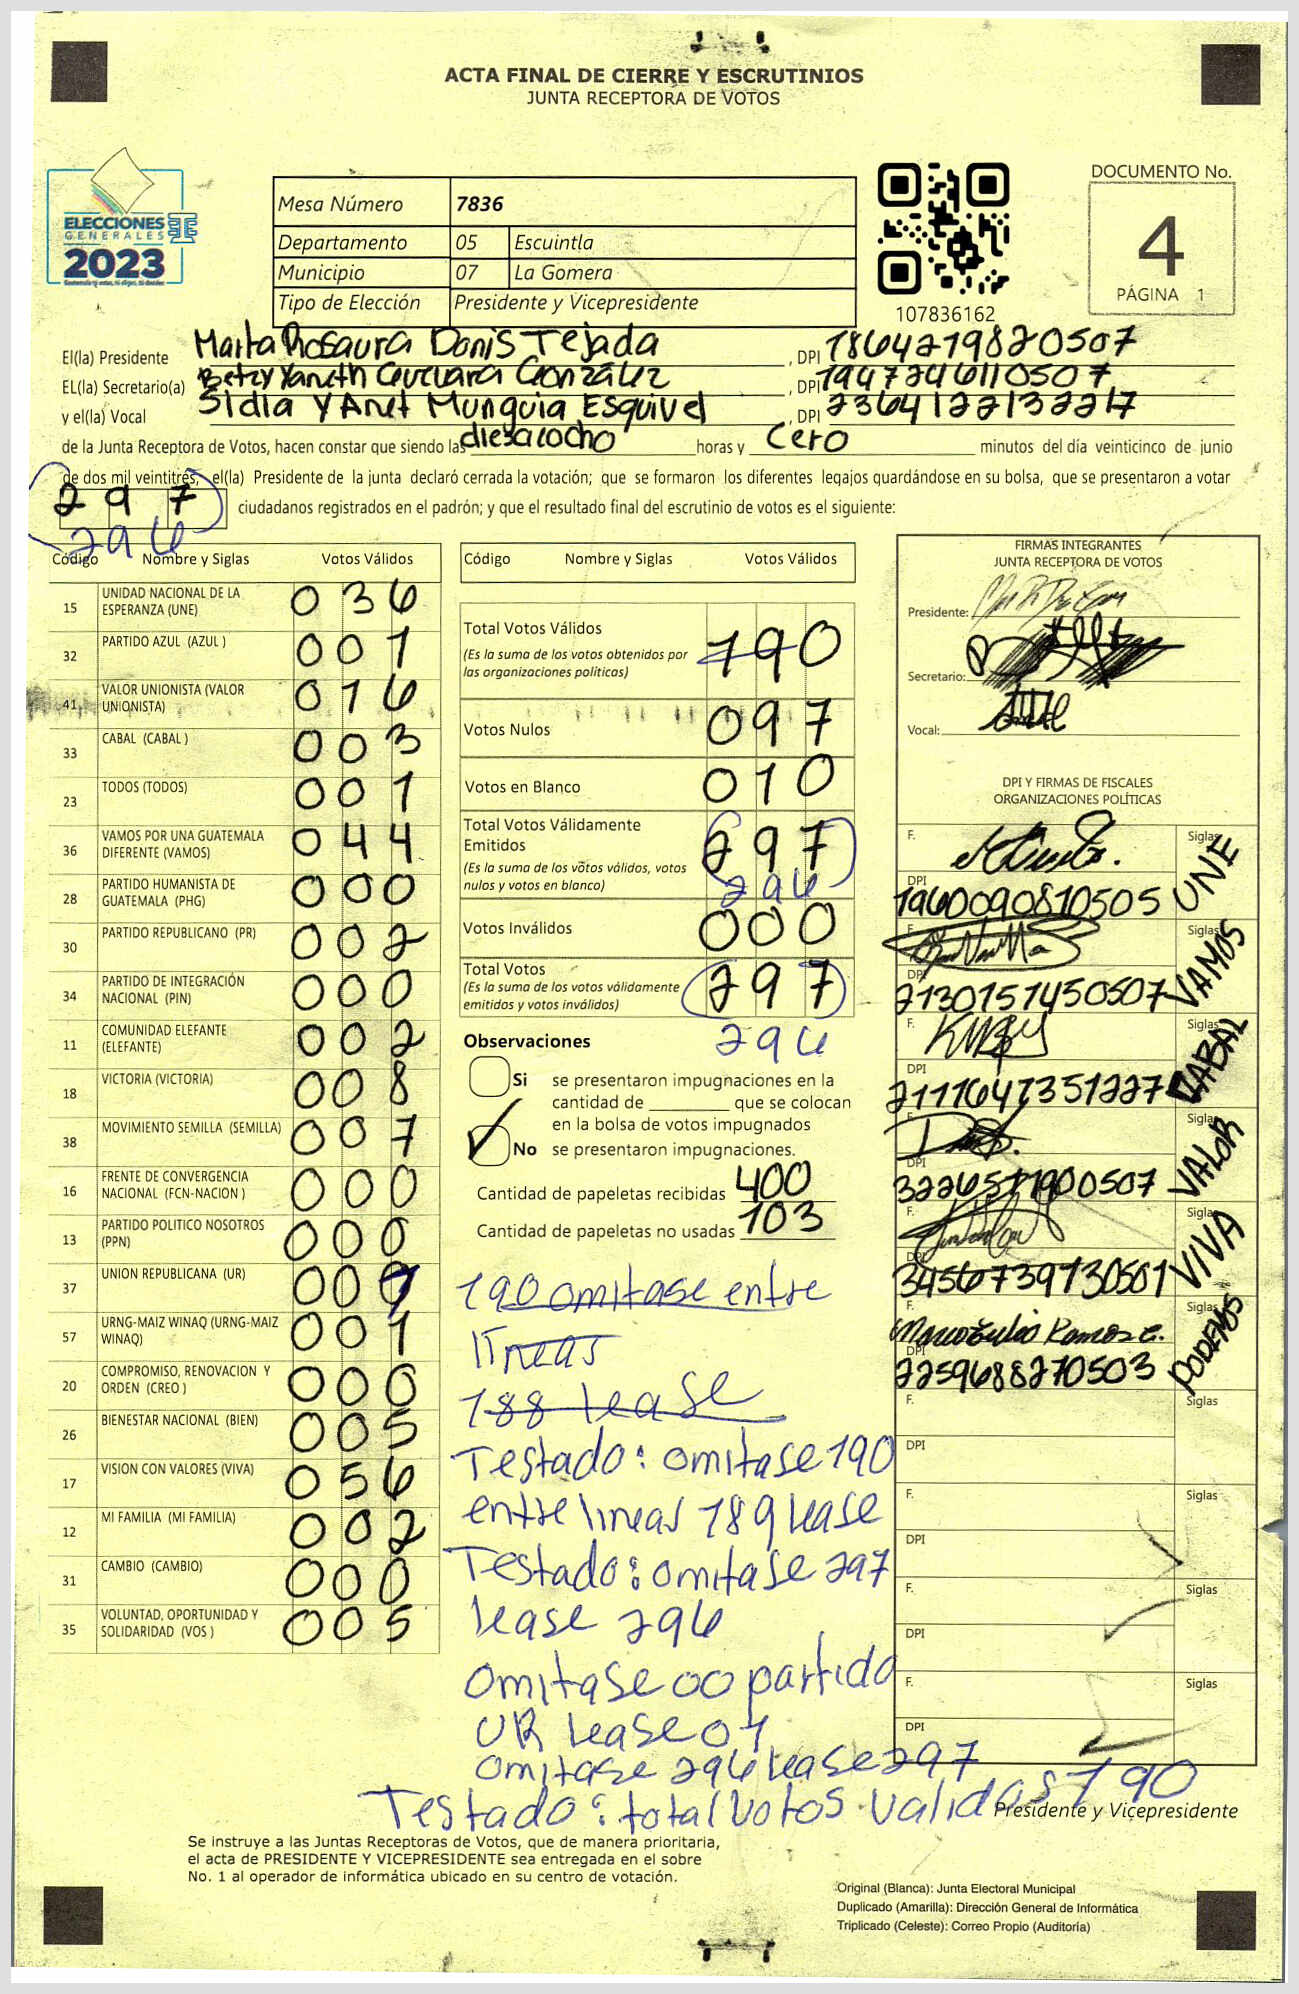 ACTA FINAL DE CIERRE Y ESCRUTINIOS
JUNTA RECEPTORA DE VOTOS
ELECCIONES
GENERALES
2023
Mesa Número 7836
Departamento 05 Escuintla
Municipio 07 La Gomera
Tipo de Elección Presidente y Vicepresidente
107836162
DOCUMENTO No.
4
PÁGINA 1
El(la) Presidente Marta Rosaura Donis Tejada , DPI 1864219820507
EL(la) Secretario(a) Betzy Yaneth Guevara González , DPI 1947246110507
y el(la) Vocal Sidia YAnet Munguia Esquivel , DPI 2364122132217
de la Junta Receptora de Votos, hacen constar que siendo las diesaiocho horas y Cero minutos del día veinticinco de junio
de dos mil veintitrés, el(la) Presidente de la junta declaró cerrada la votación; que se formaron los diferentes legajos guardándose en su bolsa, que se presentaron a votar
297 ciudadanos registrados en el padrón; y que el resultado final del escrutinio de votos es el siguiente:
296
Código Nombre y Siglas Votos Válidos
15 UNIDAD NACIONAL DE LA ESPERANZA (UNE) 036
32 PARTIDO AZUL (AZUL ) 001
41 VALOR UNIONISTA (VALOR UNIONISTA) 016
33 CABAL (CABAL ) 003
23 TODOS (TODOS) 001
36 VAMOS POR UNA GUATEMALA DIFERENTE (VAMOS) 044
28 PARTIDO HUMANISTA DE GUATEMALA (PHG) 000
30 PARTIDO REPUBLICANO (PR) 002
34 PARTIDO DE INTEGRACIÓN NACIONAL (PIN) 000
11 COMUNIDAD ELEFANTE (ELEFANTE) 002
18 VICTORIA (VICTORIA) 008
38 MOVIMIENTO SEMILLA (SEMILLA) 007
16 FRENTE DE CONVERGENCIA NACIONAL (FCN-NACION ) 000
13 PARTIDO POLITICO NOSOTROS (PPN) 000
37 UNION REPUBLICANA (UR) 001
57 URNG-MAIZ WINAQ (URNG-MAIZ WINAQ) 001
20 COMPROMISO, RENOVACION Y ORDEN (CREO ) 000
26 BIENESTAR NACIONAL (BIEN) 005
17 VISION CON VALORES (VIVA) 056
12 MI FAMILIA (MI FAMILIA) 002
31 CAMBIO (CAMBIO) 000
35 VOLUNTAD, OPORTUNIDAD Y SOLIDARIDAD (VOS ) 005
Código Nombre y Siglas Votos Válidos
Total Votos Válidos 190
(Es la suma de los votos obtenidos por las organizaciones políticas)
Votos Nulos 097
Votos en Blanco 010
Total Votos Válidamente Emitidos 297
(Es la suma de los votos válidos, votos nulos y votos en blanco) 296
Votos Inválidos 000
Total Votos 297
(Es la suma de los votos válidamente emitidos y votos inválidos)
296
Observaciones
Si se presentaron impugnaciones en la
cantidad de ________ que se colocan
en la bolsa de votos impugnados
No se presentaron impugnaciones.
Cantidad de papeletas recibidas 400
Cantidad de papeletas no usadas 103
190 omitase entre
lineas
188 lease
Testado: omitase 190
entre lineas 189 lease
Testado: omitase 297
lease 296
omitase 00 partido
UR lease 01
omitase 296 lease 297
Testado: total votos validas 190
FIRMAS INTEGRANTES
JUNTA RECEPTORA DE VOTOS
Presidente:
Secretario:
Vocal:
DPI Y FIRMAS DE FISCALES
ORGANIZACIONES POLÍTICAS
F. Siglas UNE
DPI 1960090810505
F. Siglas VAMOS
DPI 2130151450507
F. Siglas CABAL
DPI 2111641351227
F. Siglas VALOR
DPI
F. Siglas VIVA
DPI 3456739130501
F. Marco Tulio Ramos C. Siglas PODEMOS
DPI 2259688270503
F. Siglas
DPI
F. Siglas
DPI
F. Siglas
DPI
F. Siglas
DPI
Presidente y Vicepresidente
Se instruye a las Juntas Receptoras de Votos, que de manera prioritaria,
el acta de PRESIDENTE Y VICEPRESIDENTE sea entregada en el sobre
No. 1 al operador de informática ubicado en su centro de votación.
Original (Blanca): Junta Electoral Municipal
Duplicado (Amarilla): Dirección General de Informática
Triplicado (Celeste): Correo Propio (Auditoría)